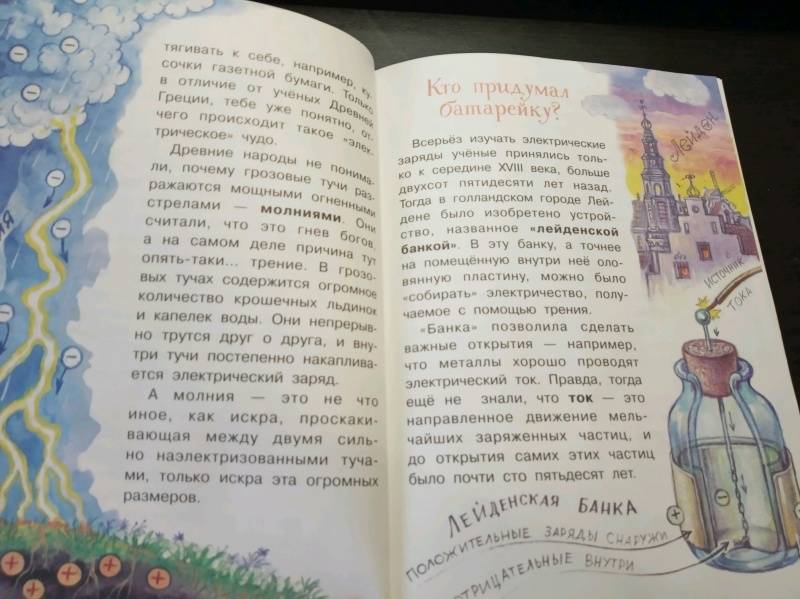 тягивать к себе, например, ку-
сочки газетной бумаги. Только
в отличие от учёных Древней
Греции, тебе уже понятно, от-
чего происходит такое «элек-
трическое» чудо.
Древние народы не понима-
ли, почему грозовые тучи раз-
ражаются мощными огненными
стрелами — молниями. Они
считали, что это гнев богов,
а на самом деле причина тут
опять-таки... трение. В грозо-
вых тучах содержится огромное
количество крошечных льдинок
и капелек воды. Они непрерыв-
но трутся друг о друга, и вну-
три тучи постепенно накаплива-
ется электрический заряд.
А молния — это не что
иное, как искра, проскаки-
вающая между двумя силь-
но наэлектризованными туча-
ми, только искра эта огромных
размеров.
Кто придумал
батарейку?
Всерьёз изучать электрические
заряды учёные принялись толь-
ко к середине XVIII века, больше
двухсот пятидесяти лет назад.
Тогда в голландском городе Лей-
дене было изобретено устрой-
ство, названное «лейденской
банкой». В эту банку, а точнее
на помещённую внутри неё оло-
вянную пластину, можно было
«собирать» электричество, полу-
чаемое с помощью трения.
«Банка» позволила сделать
важные открытия — например,
что металлы хорошо проводят
электрический ток. Правда, тогда
ещё не знали, что ток — это
направленное движение мель-
чайших заряженных частиц, и
до открытия самих этих частиц
было почти сто пятьдесят лет.
Лейден
источник
тока
Лейденская банка
положительные заряды снаружи
отрицательные внутри